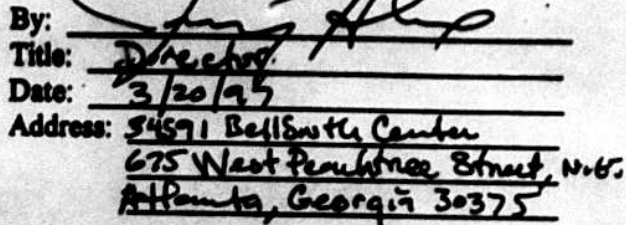 By:
Title: Director
Date: 3/20/97
Address: 34S91 BellSouth Center
675 West Peachtree Street, N.E.
Atlanta, Georgia 30375